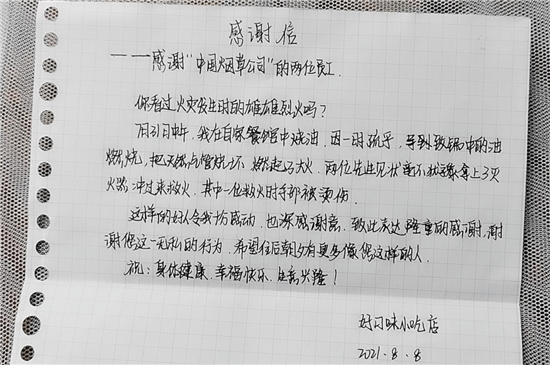 感谢信
——感谢“中国烟草公司”的两位员工.
你看过火灾发生时的雄雄烈火吗?
7月31日中午,我在自家餐馆中炼油,因一时疏乎,导到致锅中的油
燃烧,把天燃点管烧坏,燃起了大火,两位先生见状毫不犹豫拿上了灭
火器冲过来救火,其中一位救火时手部被烫伤.
这样的好人令我好感动,也深感谢意,致此表达隆重的感谢,谢
谢您这一无私的行为,希望往后朝夕有更多像您这样的人.
祝:身体健康,幸福快乐,生意兴隆!
好口味小吃店
2021.8.8